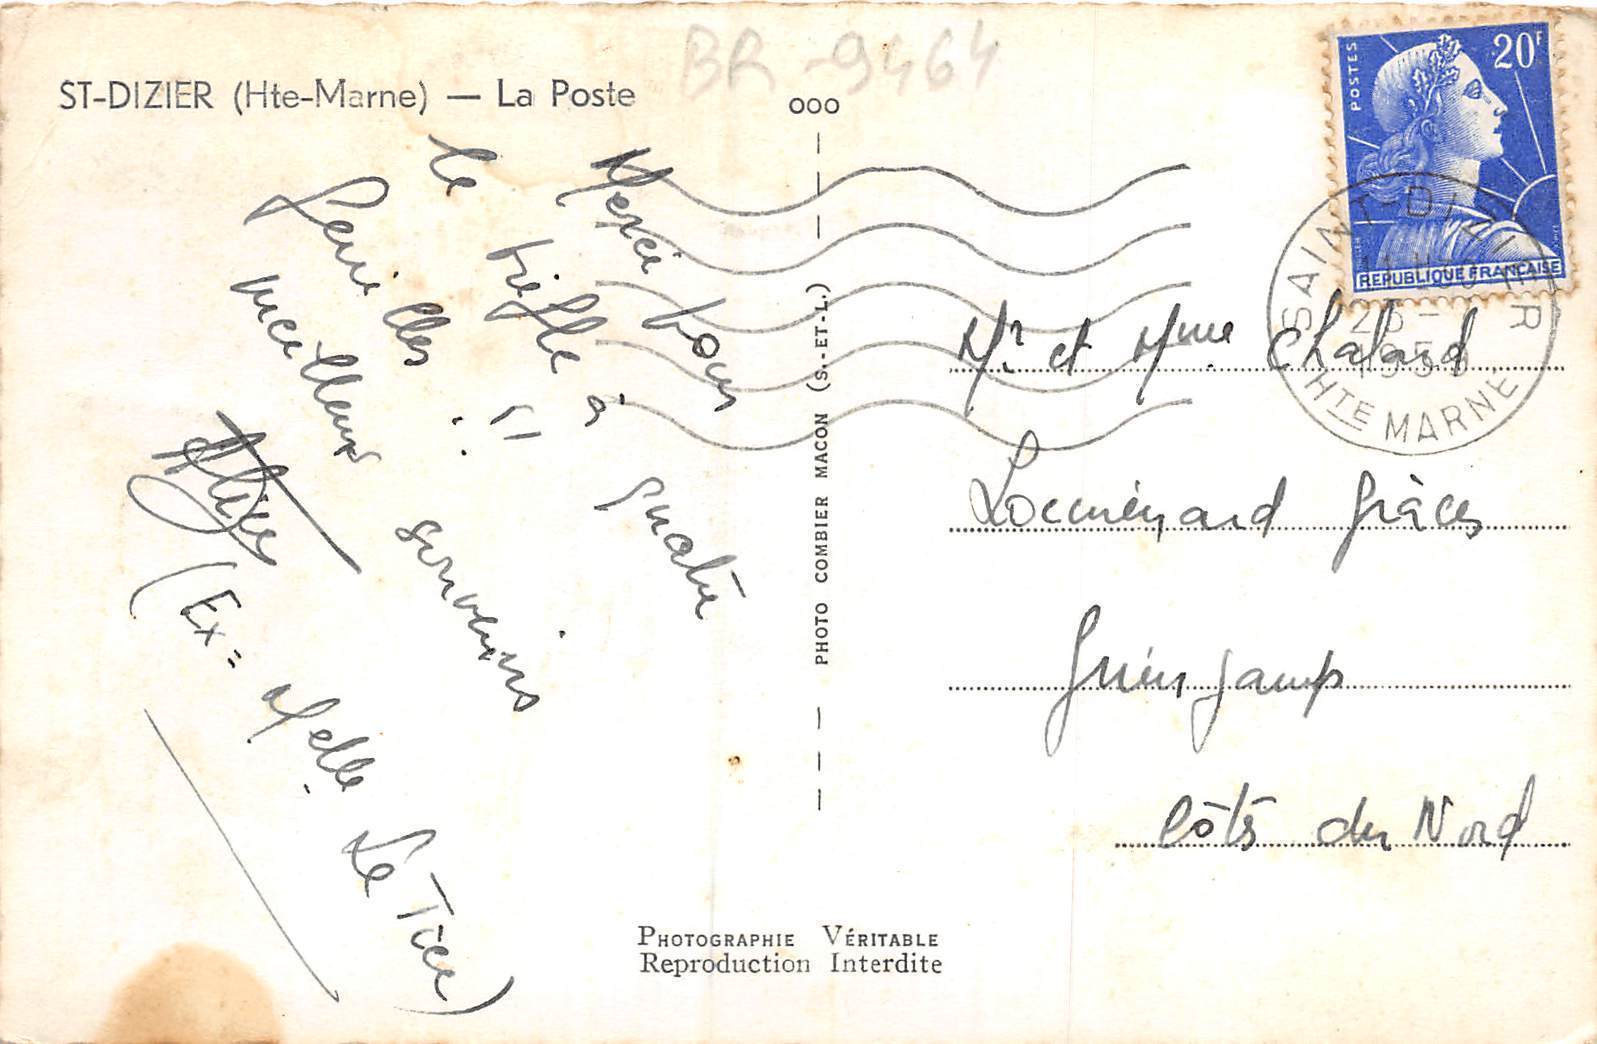 BR-9464
ST-DIZIER (Hte-Marne) — La Poste
ooo
Merci pour
le trèfle à quatre
feuilles !!
meilleurs souvenirs
(Ex= Melle Le Ticc)
PHOTO COMBIER MACON (S.-ET-L.)
20F
POSTES
REPUBLIQUE FRANÇAISE
SAINT-DIZIER
HTE MARNE
Mr et Mme Chalard
Locménard Grâces
Guingamp
Côtes du Nord
PHOTOGRAPHIE VÉRITABLE
Reproduction Interdite